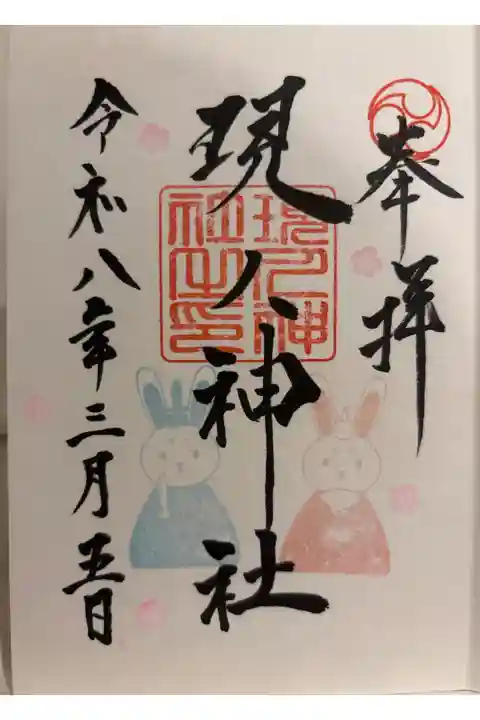 奉拝
現人神社
現人神
社之印
令和八年三月五日